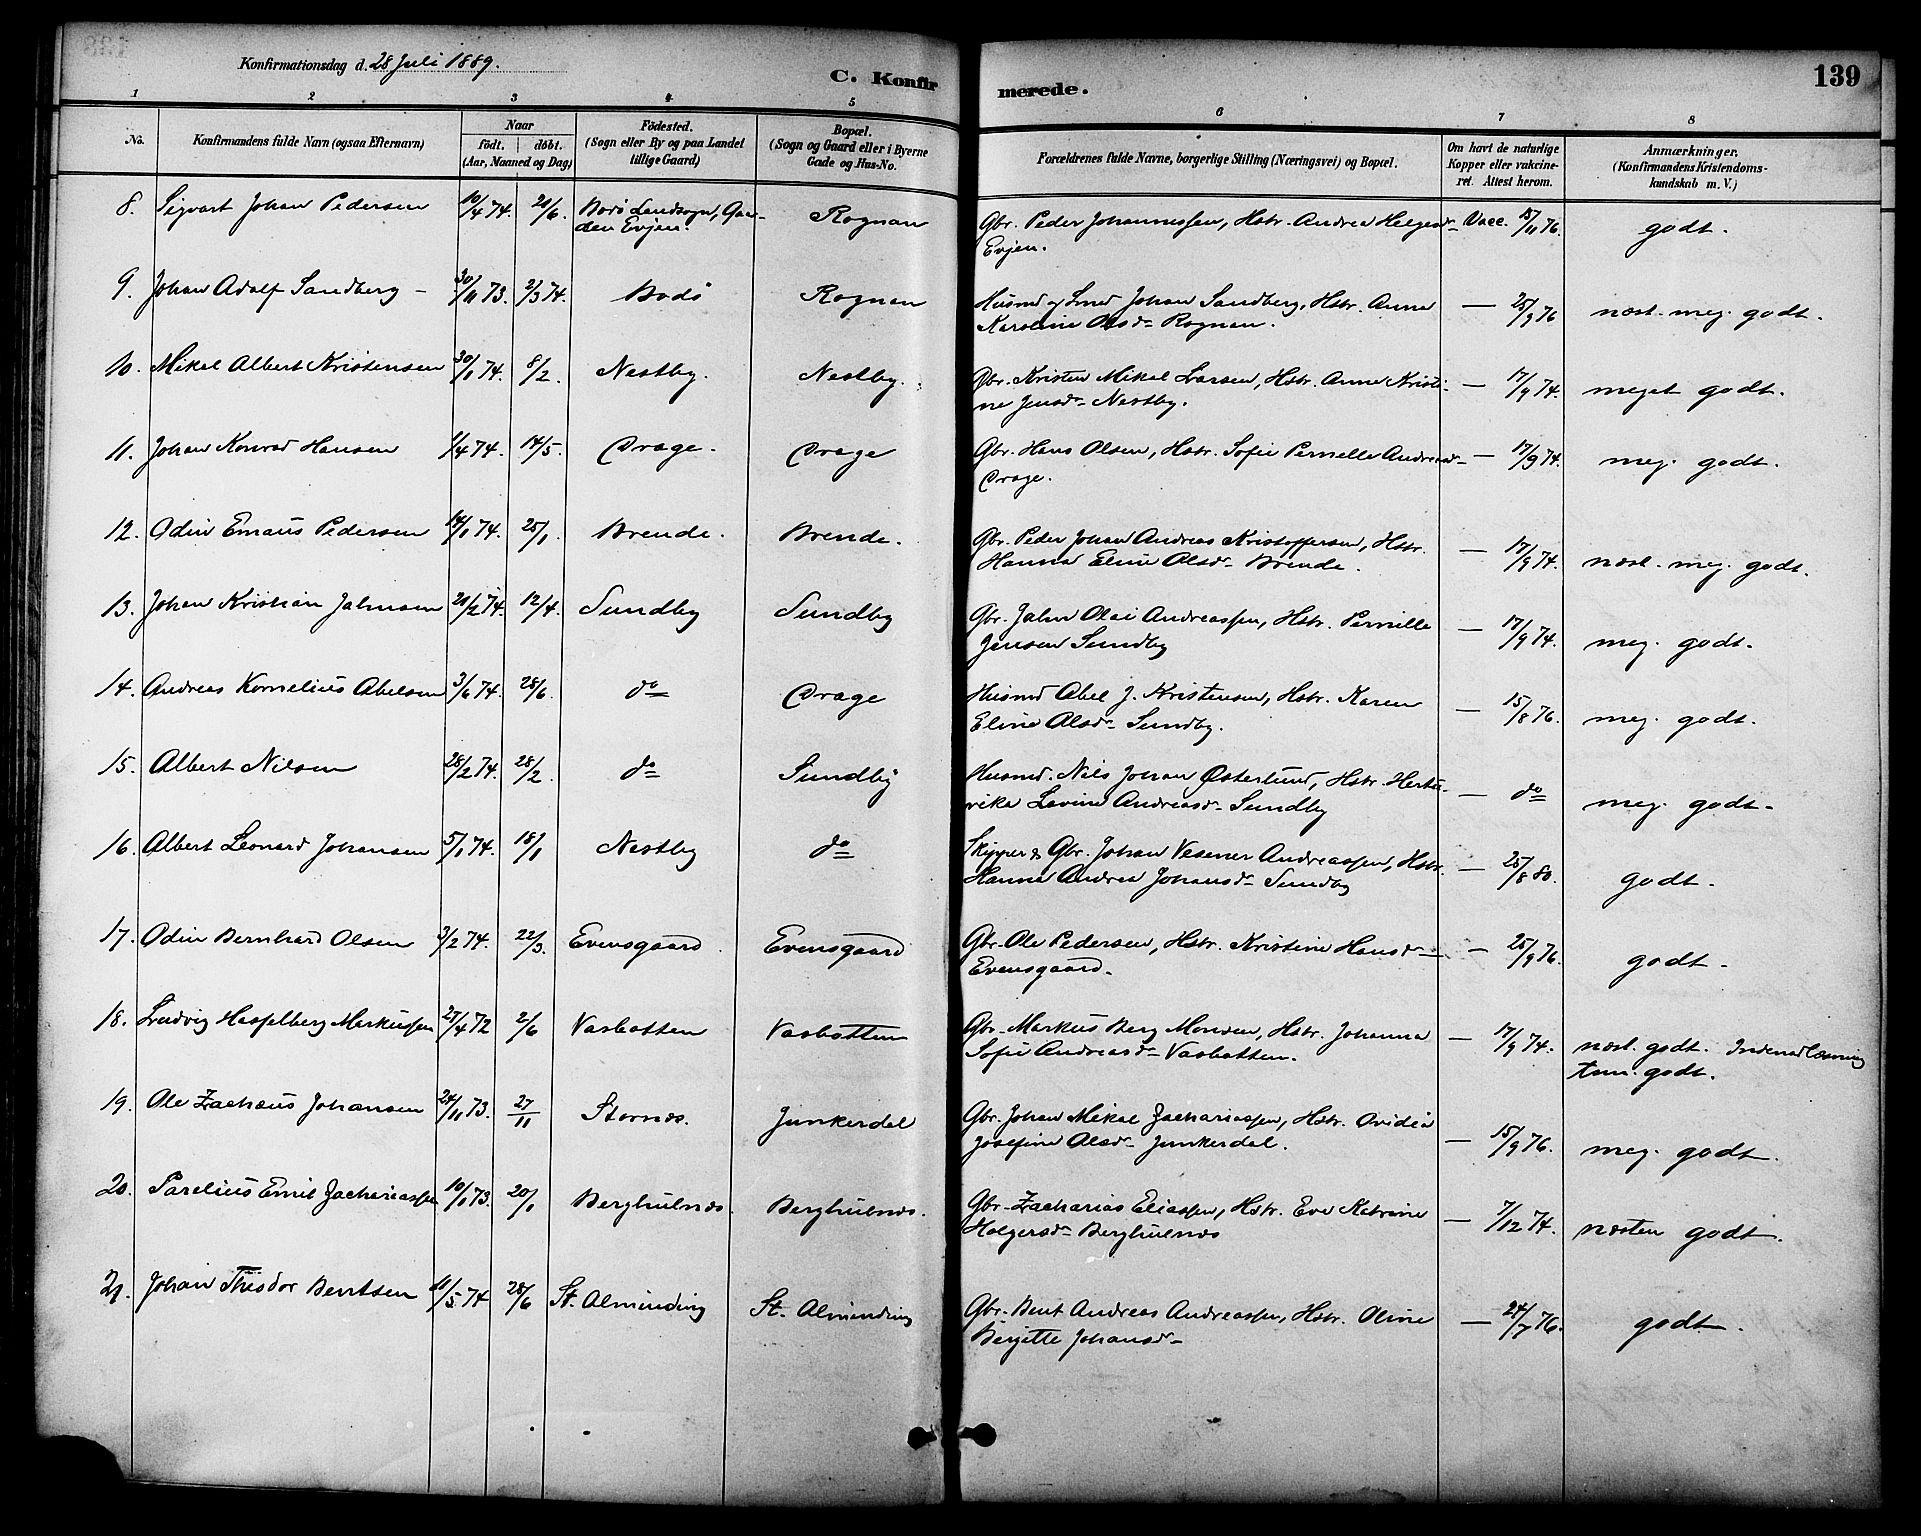 Konfirmationsdag d. 28 Juli 1889.
C. Konfir
merede.
139
1 2 3 4 5 6 7 8
No.
Konfirmandens fulde Navn (ogsaa Efternavn)
Naar
födt. döbt.
(Aar, Maaned og Dag)
Födested.
(Sogn eller By og paa Landet
tillige Gaard)
Bopæl.
(Sogn og Gaard eller i Byerne
Gade og Hus-No.
Forældrenes fulde Navne, borgerlige Stilling (Næringsvei) og Bopæl.
Om havt de naturlige
Kopper eller vakcine-
ret. Attest herom.
Anmærkninger.
(Konfirmandens Kristendoms-
kundskab m. V.)
8. Sigvart Johan Pedersen 10/4 74. 21/6. Bodö Landsogn, Gaar- Rognan Gbr. Peder Johannessen, Hstr. Andrea Helgesd- Vacc. 15/11 76. godt.
den Evjen. Evjen.
9. Johan Adolf Sandberg - 30/11 73. 2/3 74. Bodö Rognan Husmd og Smed Johan Sandberg, Hstr. Anna — 25/9 76 næst. meg. godt.
Karoline Olsdr Rognan.
10. Mikal Albert Kristensen 30/1 74. 8/2. Nestby. Nestby. Gbr. Kristen Mikal Larsen, Hstr. Anne Kristi- — 17/9 74. meget godt.
ne Jensdr Nestby.
11. Johan Konrad Hansen 1/4 74. 14/5. Drage. Drage Gbr. Hans Olsen, Hstr. Sofie Pernelle Andreasd- — 17/9 74. meg. godt.
Drage.
12. Odin Emaus Pedersen 14/1 74. 25/1. Brende. Brende. Gbr. Peder Johan Andreas Kristoffersen, Hstr. — 17/9 74. næst. meg. godt.
Hanna Eline Olsdr Brende.
13. Johan Kristian Jalmsen 20/2 74. 12/4. Sundby Sundby Gbr. Jalm Olai Andreassen, Hstr. Pernille — 17/9 74. meg. godt.
Jensen Sundby
14. Andreas Kornelius Abelsen 3/6 74. 28/6. do Drage Husmd Abel J. Kristensen, Hstr. Karen — 15/8 76. meg. godt.
Eline Olsdr Sundby.
15. Albert Nilsen 28/2 74. 28/2. do Sundby Husmd. Nils Johan Østerlund, Hstr. Hertu- — do meg. godt.
vika Lavina Andreasdr Sundby
16. Albert Leonard Johansen 5/1 74. 18/1 Nestby do Skipper & Gbr. Johan Vesener Andreassen, Hstr. — 25/8 80. godt.
Hanna Andrea Johansdr Sundby
17. Odin Bernhard Olsen 3/2 74. 22/3. Evensgaard. Evensgaard Gbr. Ole Pedersen, Hstr. Kristine Hansdr — 25/9 76. godt.
Evensgaard.
18. Ludvig Hasselberg Markussen 27/4 72 2/6 Vasbotten Vasbotten Gbr. Markus Berg Monsen, Hstr. Johanna — 17/9 74. næst. godt. Indenadlæsning
Sofie Andreasdr Vasbotten. tem. godt.
19. Ole Zachæus Johansen 24/11 73. 27/11 Stornæs. Junkerdal Gbr. Johan Mikal Zachariassen, Hstr. Ovidia — 15/9 76. meg. godt.
Josefine Olsdr Junkerdal.
20. Parelius Emil Zachariassen 10/1 73. 20/1 Berghulnæs. Berghulnæs. Gbr. Zacharias Eliassen, Hstr. Eva Katrine — 7/12 74. næsten godt.
Holgersdr Berghulnæs
21. Johan Theodor Bentsen 11/5 74 28/6 St. Alminding St. Alminding Gbr. Bent Andreas Andreassen, Hstr. Oline — 24/7 76. godt.
Bergitte Johansdr